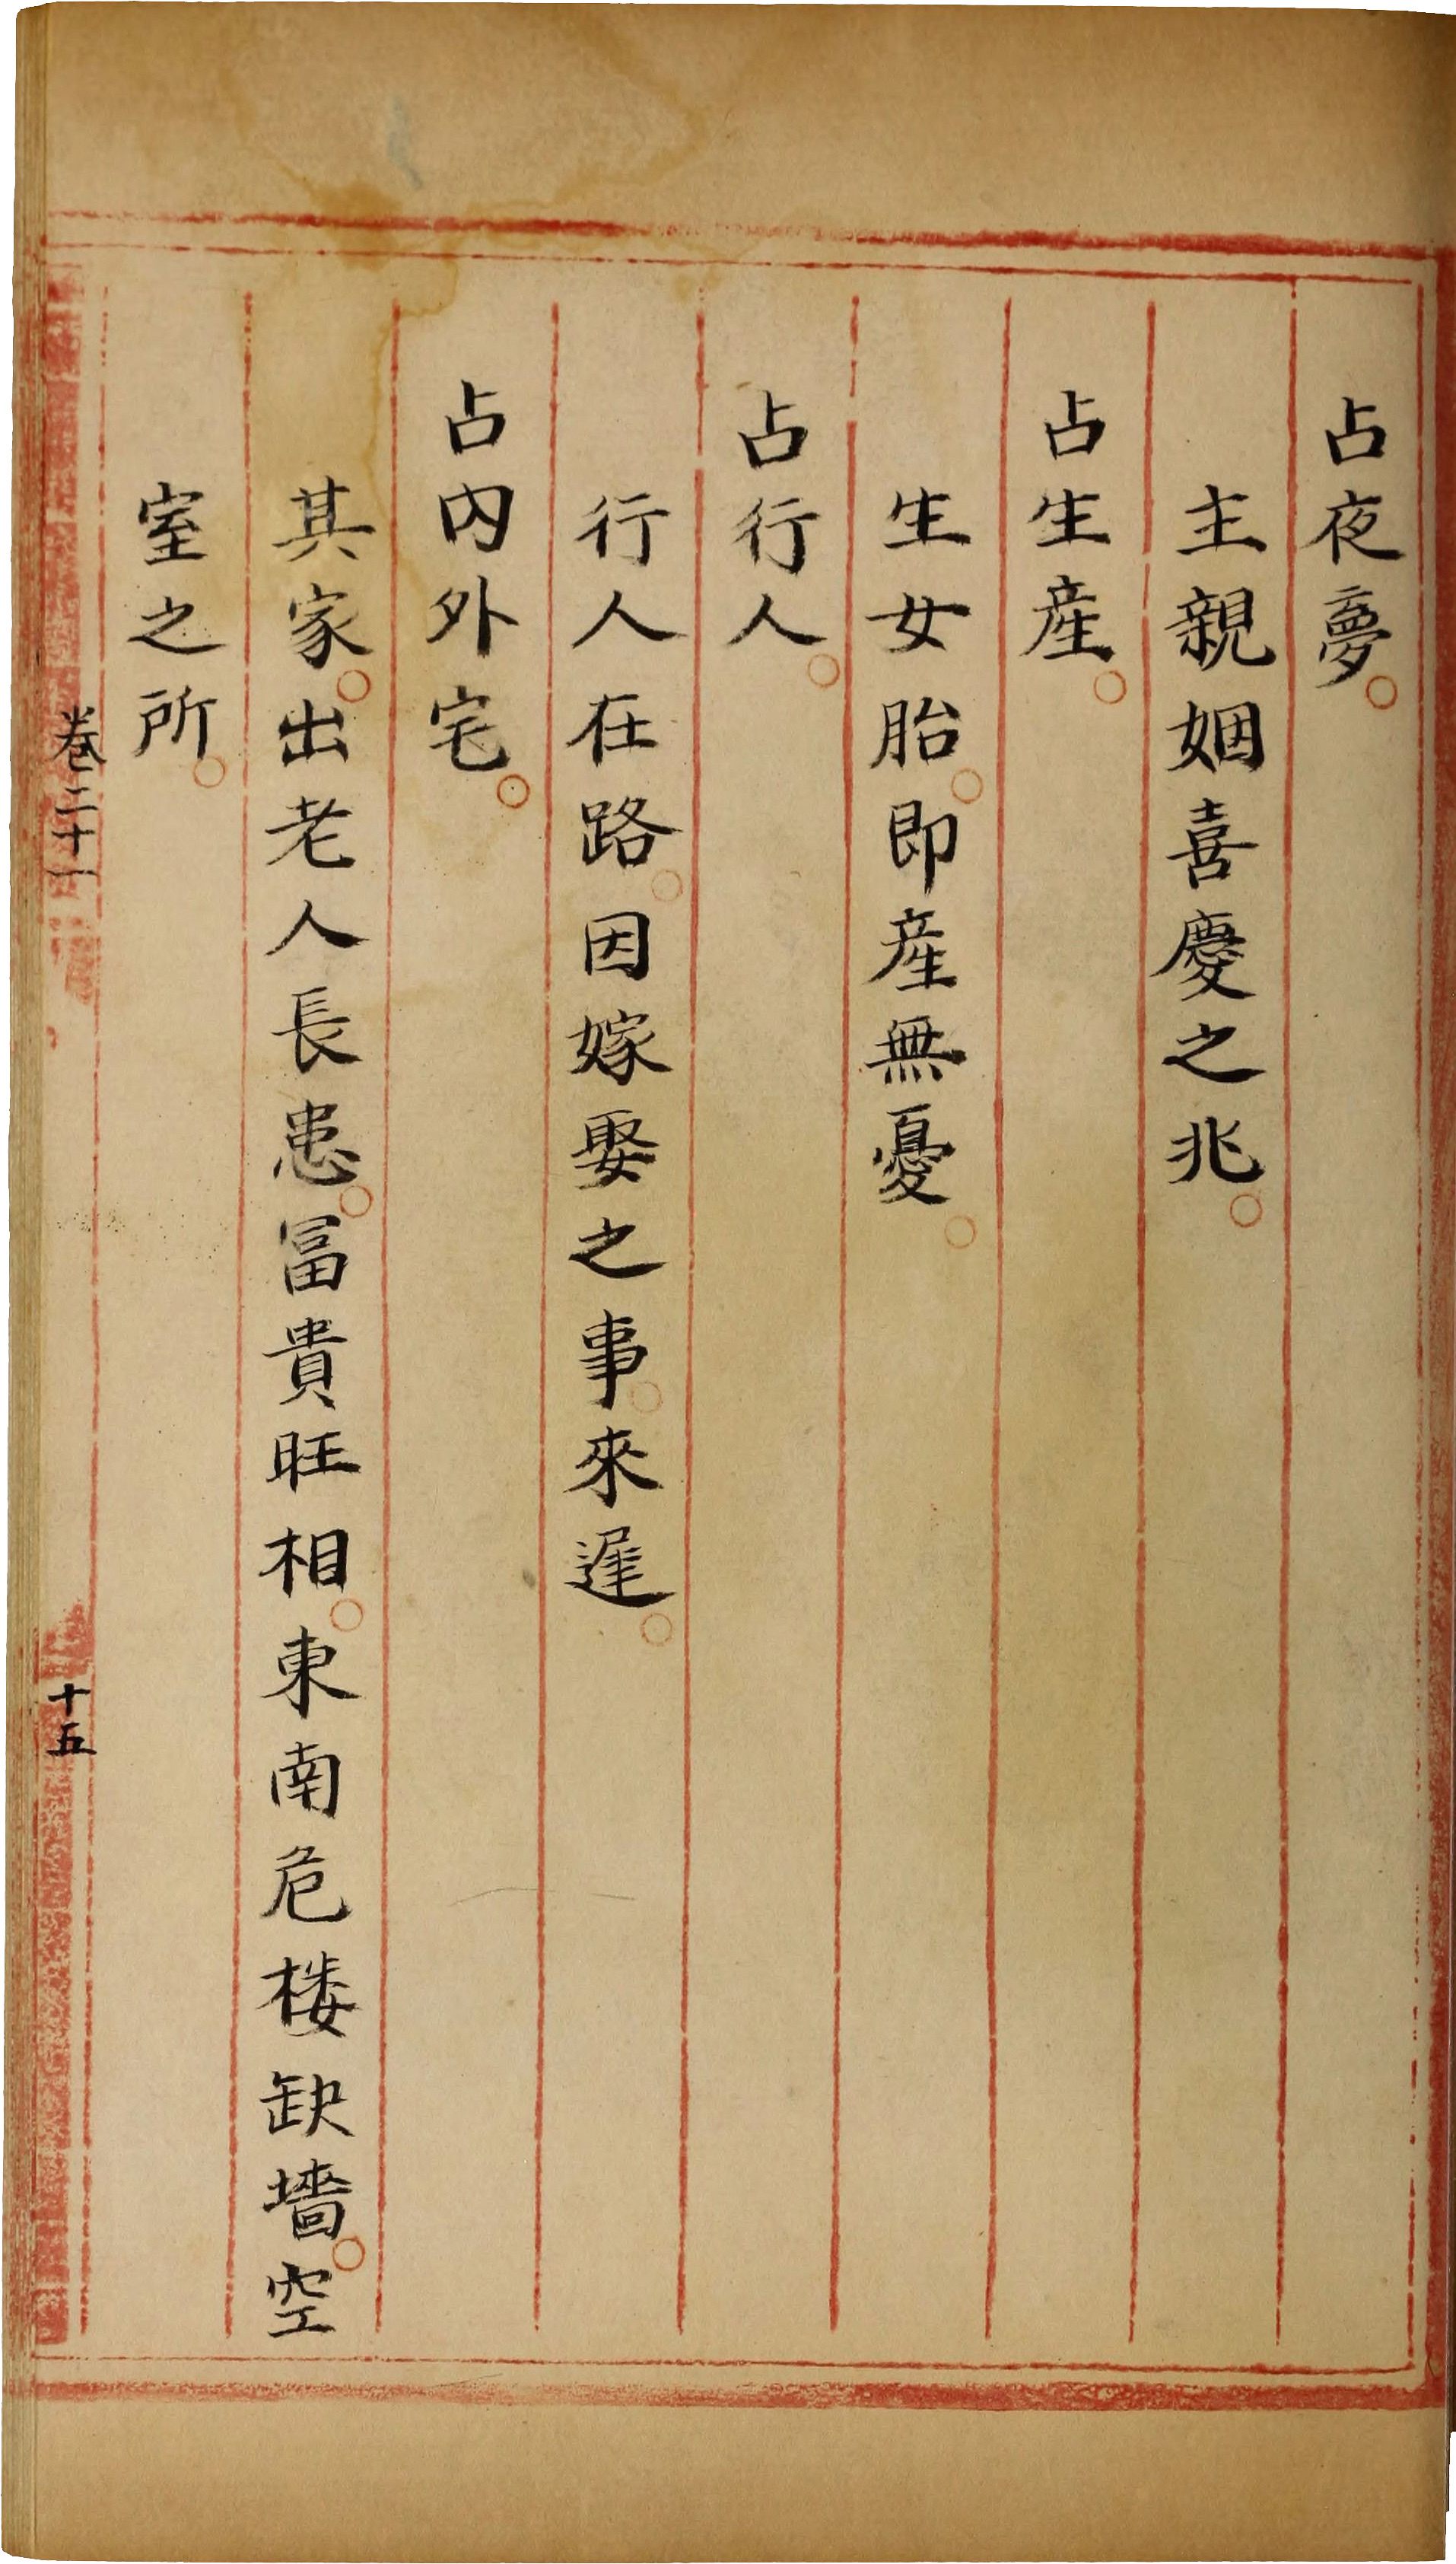 占夜夢。
主親姻喜慶之兆。
占生產。
生女胎。即產無憂。
占行人。
行人在路。因嫁娶之事。來遲。
占內外宅。
其家。出老人長患。冨貴旺相。東南危楼缺墻。空
室之所。
卷二十一
十五